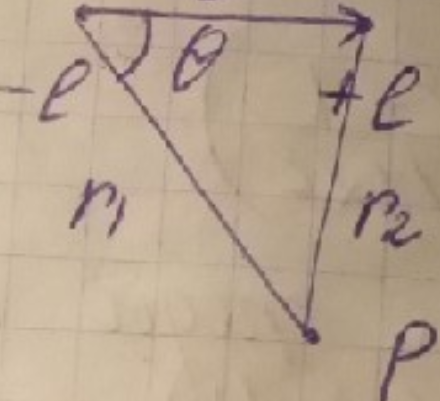 θ
-e +e
r₁ r₂
P